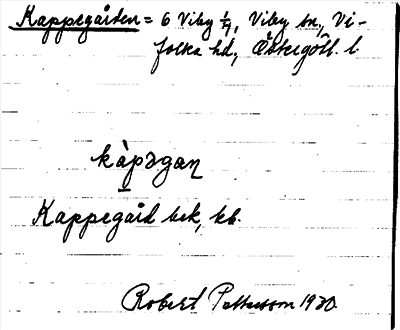 Kappegården = 6 Viby 1/4, Viby sn, Vi-
folka hd, Östergötl. l.
kàpəgaɳ
Kappegård bek, kb.
Robert Pettersson 1930